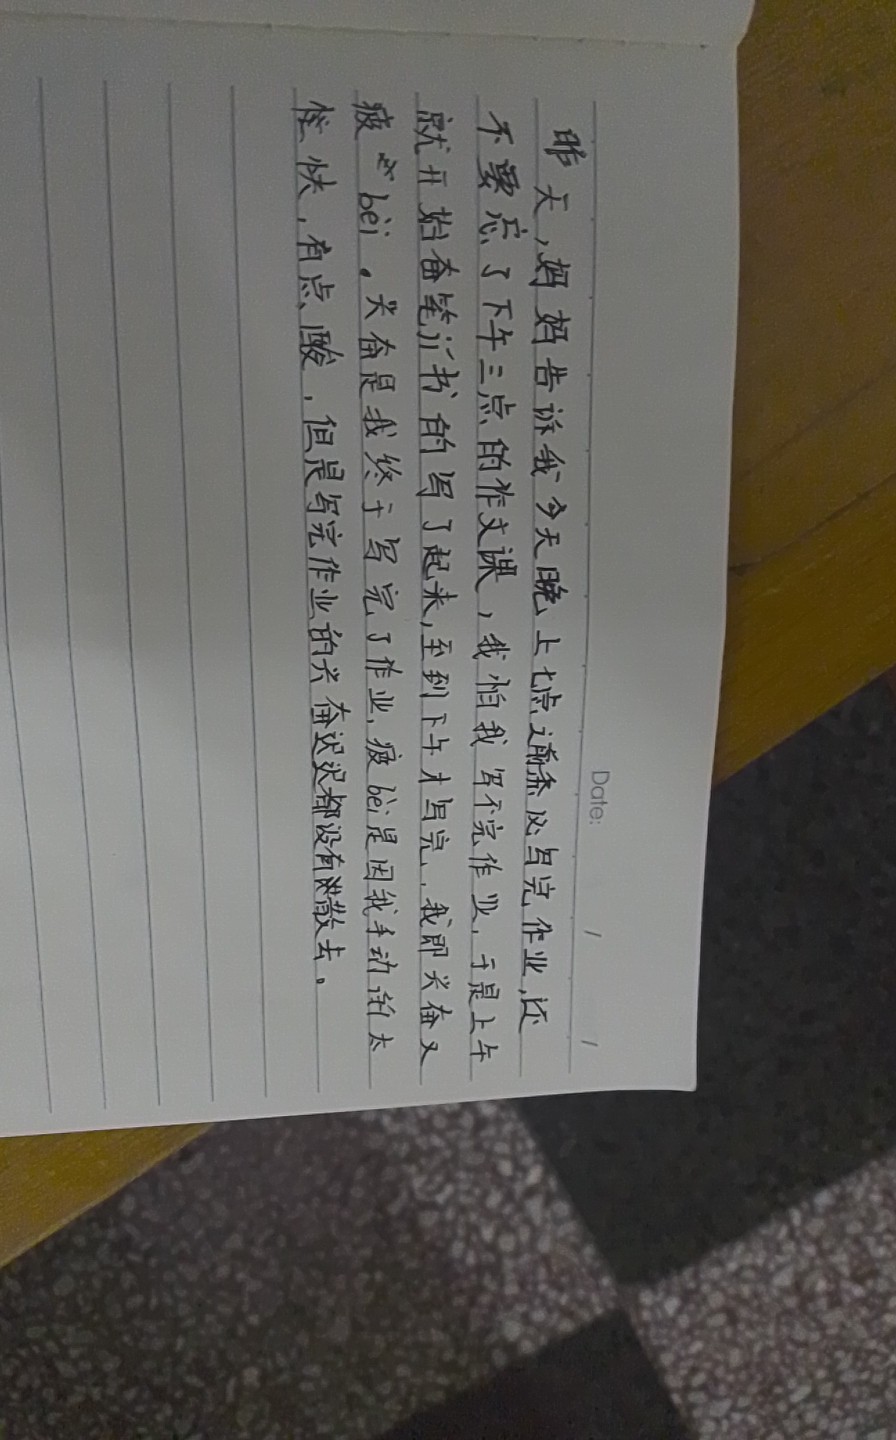 Date: / /
昨天,妈妈告诉我今天晚上七点之前务必写完作业,还
不要忘了下午三点的作文课,我怕我写不完作业,于是上午
就开始奋笔疾书的写了起来,至到下午才写完,我即兴奋又
疲bèi。兴奋是我终于写完了作业,疲bèi是因我手动得太
快,有点酸,但是写完作业的兴奋迟迟都没有散去。